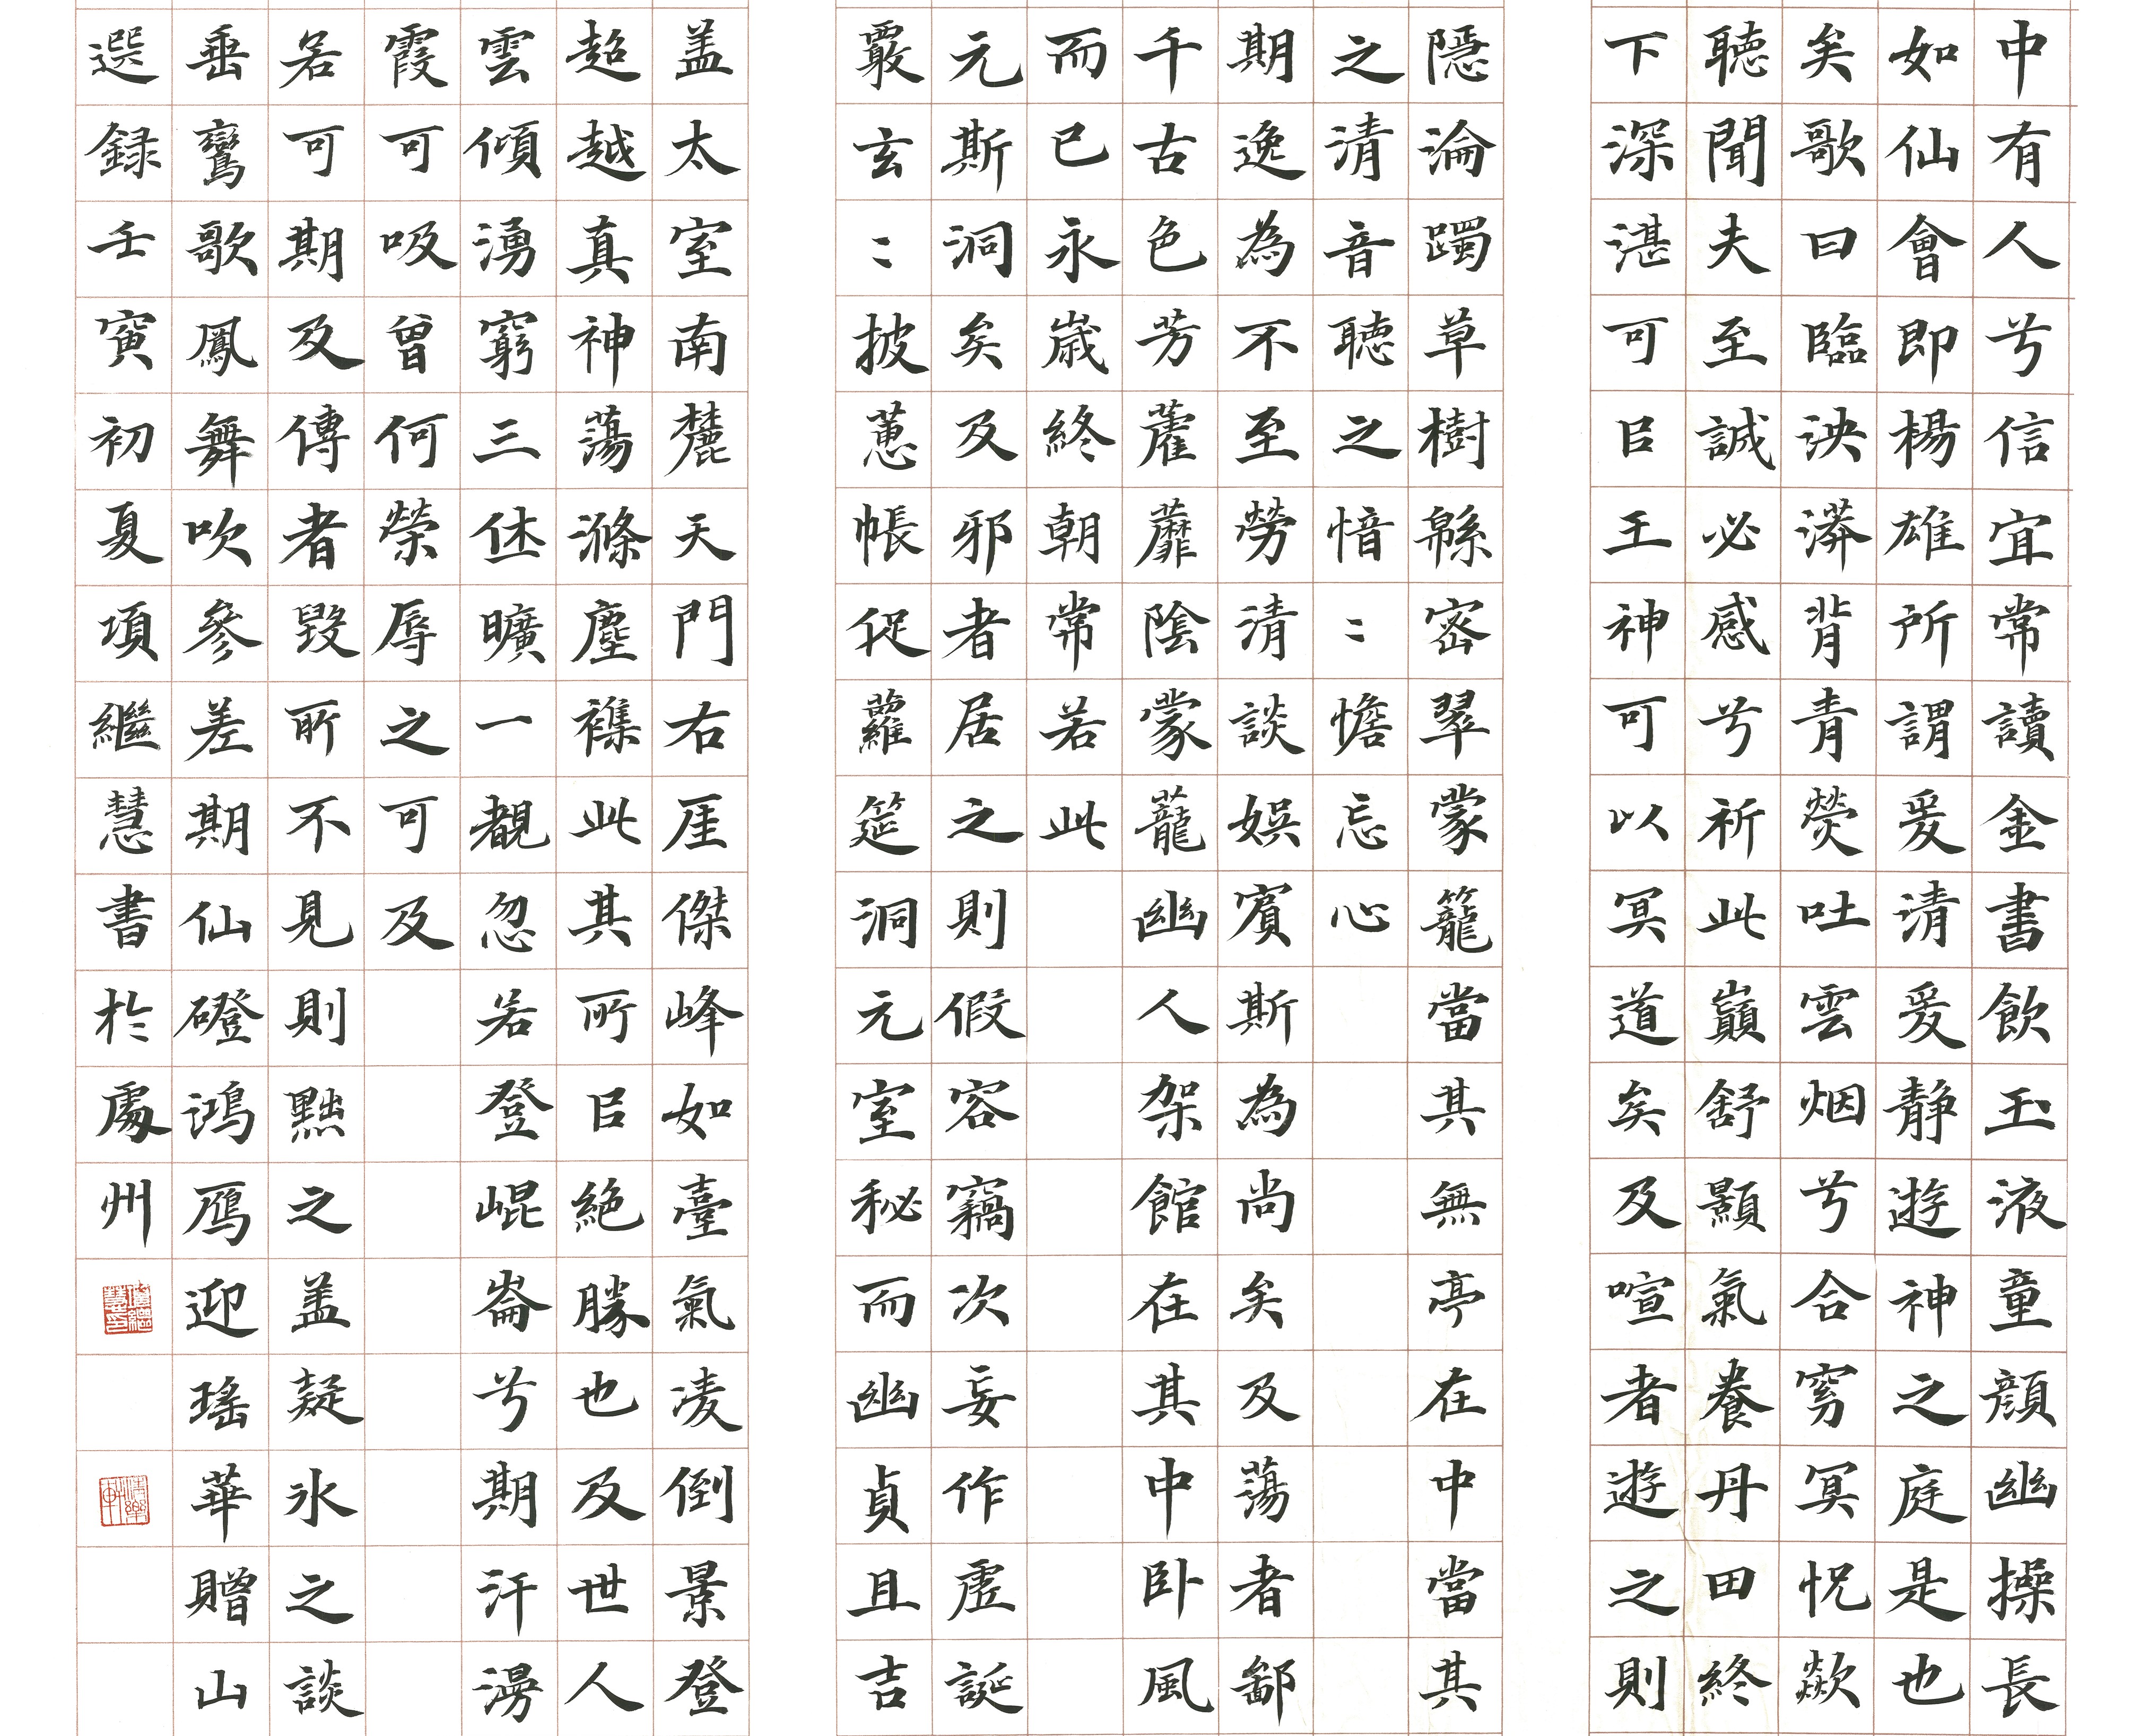 中有人兮信宜常讀金書飲玉液童顏幽操長
如仙會即楊雄所謂爰清爰靜遊神之庭是也
矣歌曰臨泱漭背青熒吐雲烟兮合窈冥怳歘
聽聞夫至誠必感兮祈此巔舒顥氣養丹田終
下深湛可㠯王神可以冥道矣及喧者遊之則
隱淪躅草樹緜密翠蒙籠當其無亭在中當其
之清音聽之愔〻憺忘心
期逸為不至勞清談娛賓斯為尚矣及蕩者鄙
千古色芳藿蘼陰蒙蘢幽人架館在其中卧風
而已永歲終朝常若此
元斯洞矣及邪者居之則假容竊次妄作虛誕
覈玄〻披蕙帳促蘿筵洞元室秘而幽貞且吉
盖太室南麓天門右厓傑峰如臺氣凌倒景登
超越真神蕩滌塵襍此其所㠯絕勝也及世人
雲傾湧窮三休曠一覩忽若登崐崙兮期汗漫
霞可吸曾何榮辱之可及
若可期及傳者毀所不見則黜之盖疑冰之談
垂鸞歌鳳舞吹參差期仙磴鴻鴈迎瑤華贈山
選録壬寅初夏項繼慧書於處州
項繼慧印